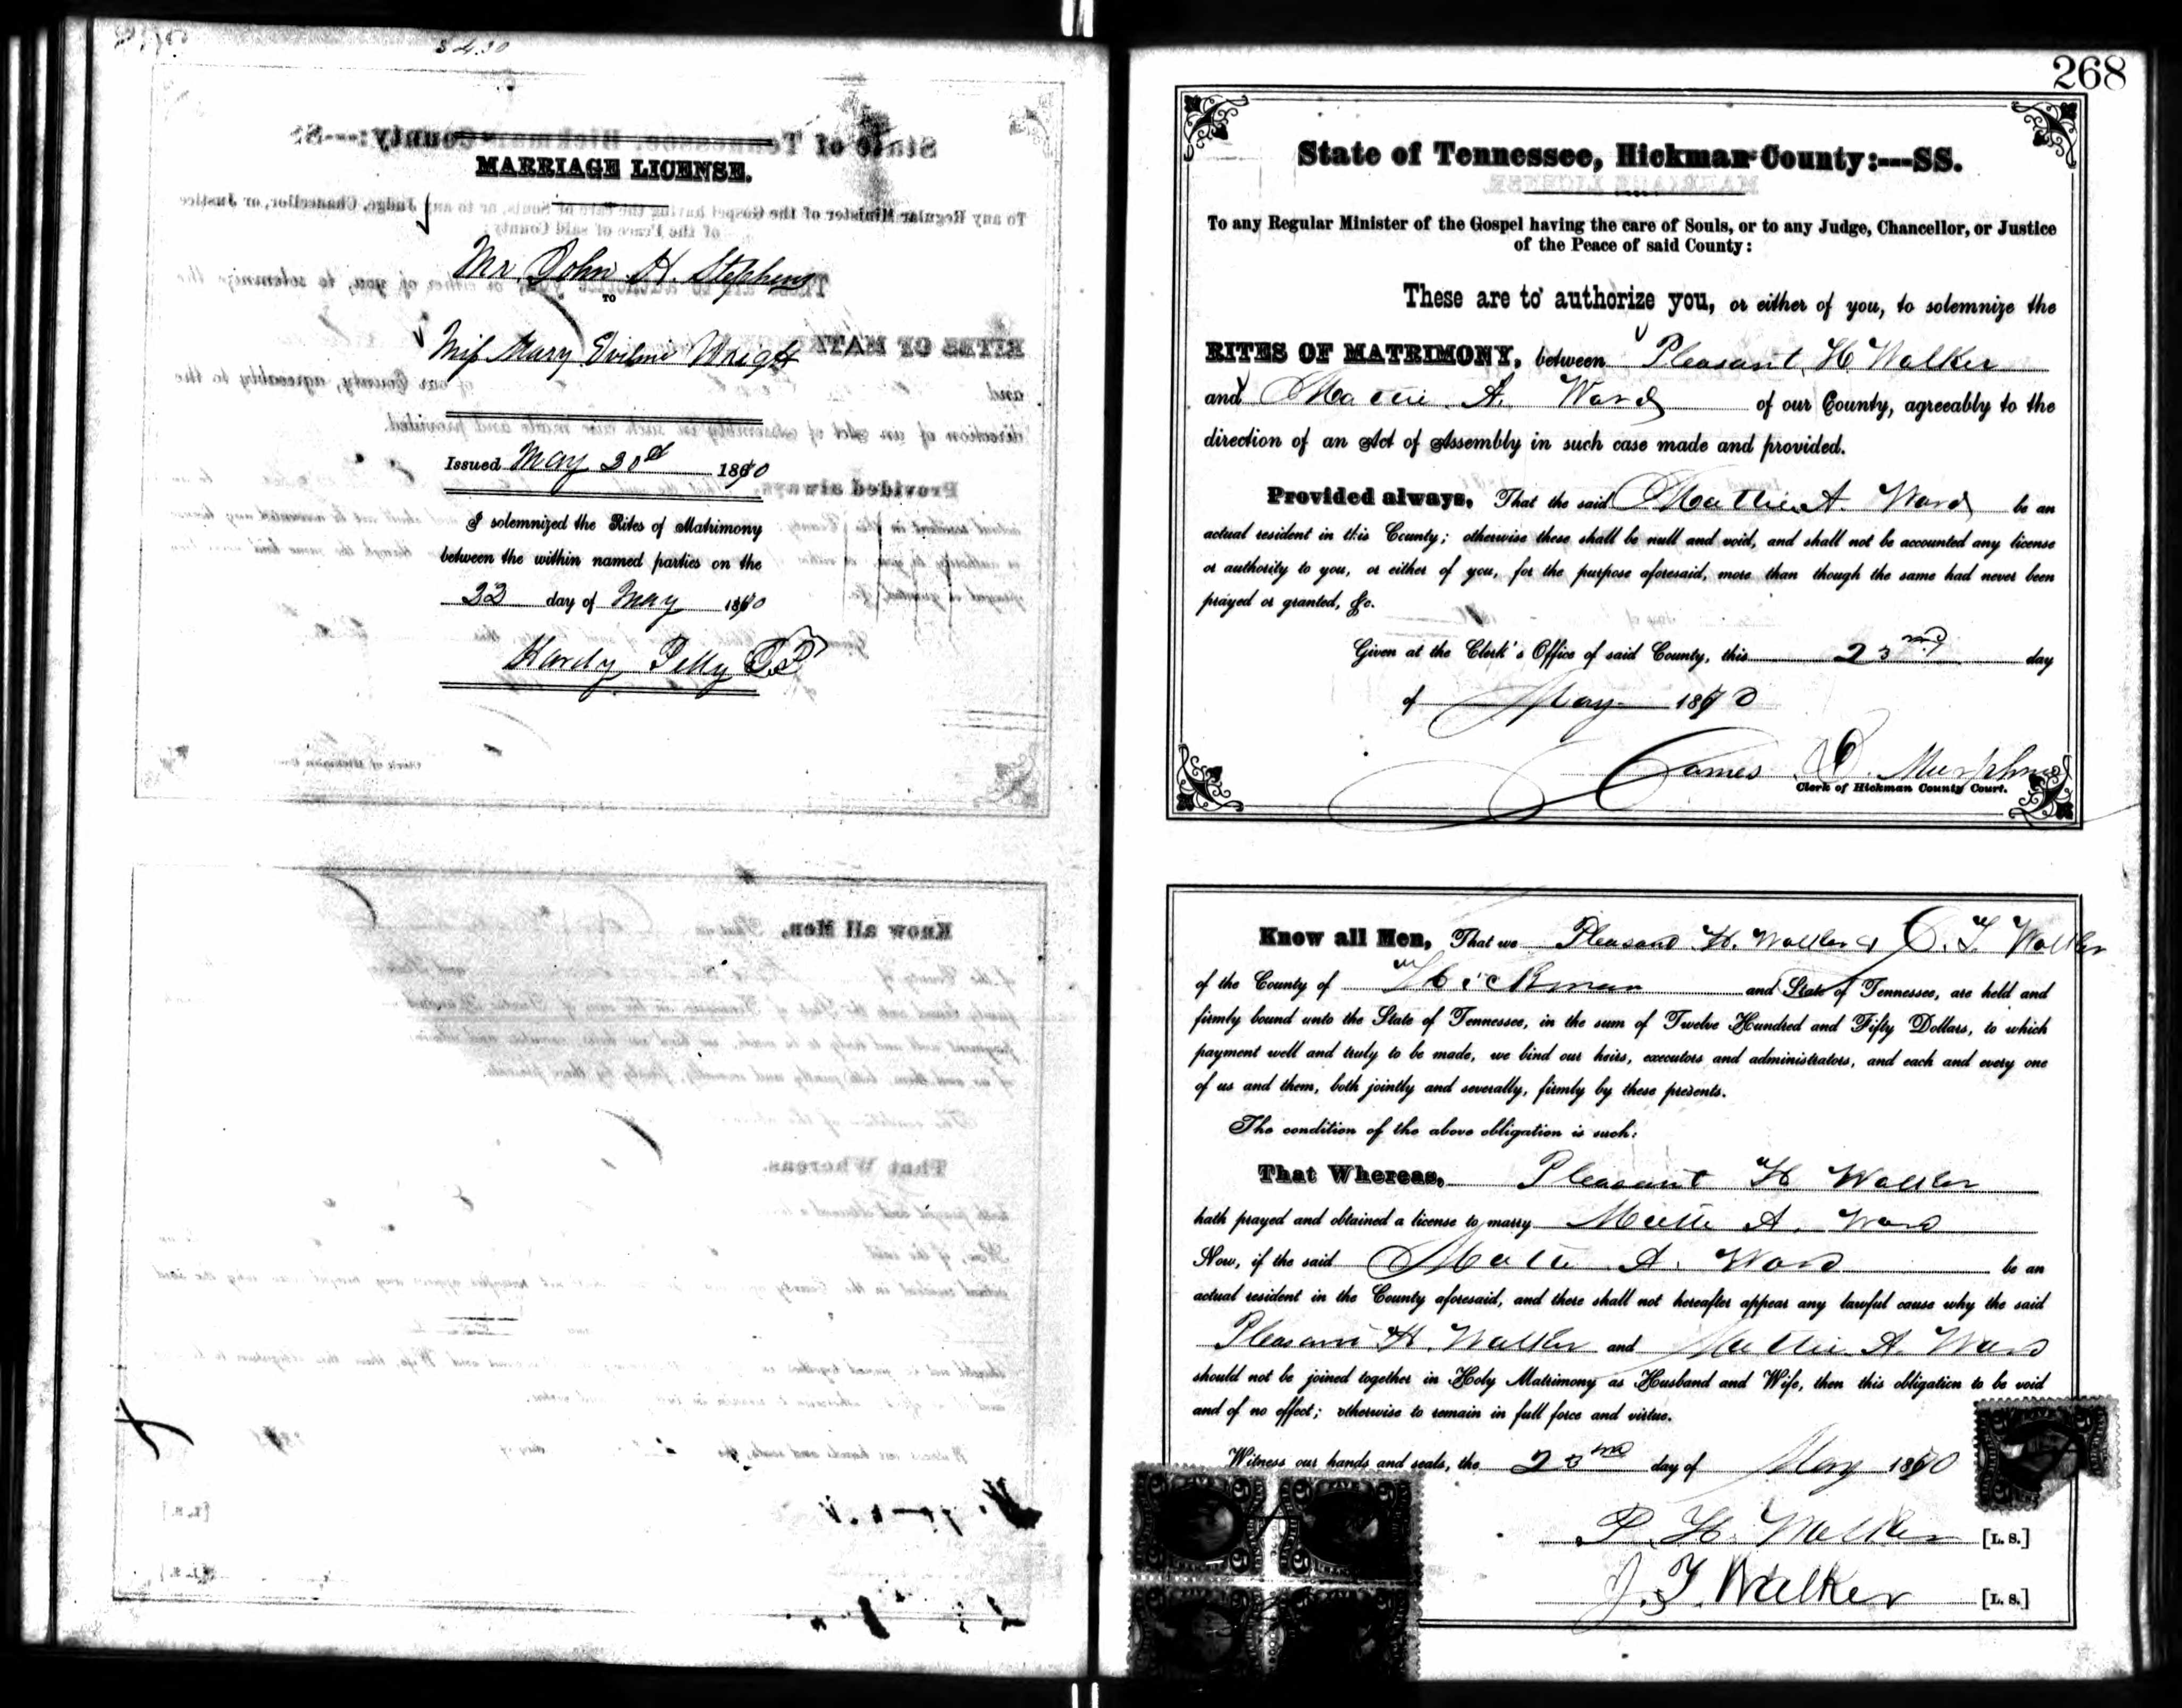 MARRIAGE LICENSE.
Mr. John H. Stephens
TO
Miss Mary Wright
Issued May 20th 1870
I solemnized the Rites of Matrimony
between the within named parties on the
22 day of May 1870
Hardy
268
State of Tennessee, Hickman County:---SS.
To any Regular Minister of the Gospel having the care of Souls, or to any Judge, Chancellor, or Justice
of the Peace of said County:
These are to authorize you, or either of you, to solemnize the
RITES OF MATRIMONY, between Pleasant H Walker
and Mattie A. Ward of our County, agreeably to the
direction of an Act of Assembly in such case made and provided.
Provided always, That the said Mattie A. Ward be an
actual resident in this County; otherwise these shall be null and void, and shall not be accounted any license
or authority to you, or either of you, for the purpose aforesaid, more than though the same had never been
prayed or granted, &c.
Given at the Clerk's Office of said County, this 23 day
of May 1870
James D. Murphree
Clerk of Hickman County Court.
Know all Men, That we Pleasant H. Walker & J. T. Walker
of the County of Hickman and State of Tennessee, are held and
firmly bound unto the State of Tennessee, in the sum of Twelve Hundred and Fifty Dollars, to which
payment well and truly to be made, we bind our heirs, executors and administrators, and each and every one
of us and them, both jointly and severally, firmly by these presents.
The condition of the above obligation is such:
That Whereas, Pleasant H Walker
hath prayed and obtained a license to marry Mattie A. Ward
Now, if the said Mattie A. Ward be an
actual resident in the County aforesaid, and there shall not hereafter appear any lawful cause why the said
Pleasant H. Walker and Mattie A. Ward
should not be joined together in Holy Matrimony as Husband and Wife, then this obligation to be void
and of no effect; otherwise to remain in full force and virtue.
Witness our hands and seals, the 23 day of May 1870
P. H. Walker [L. S.]
J. T. Walker [L. S.]